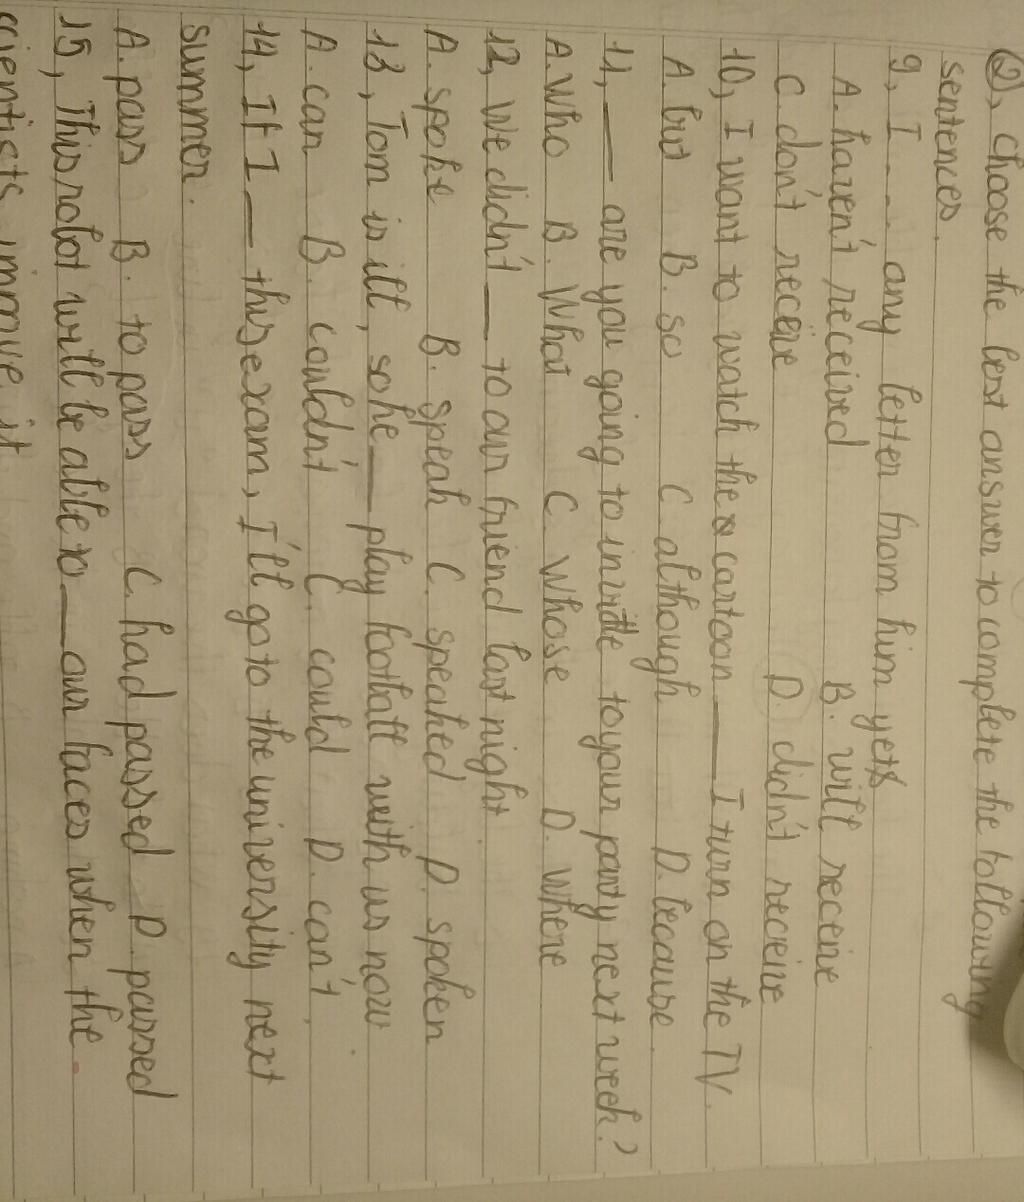 2), choose the best answer to complete the following
sentences.
9, I ... any letter from him yet
A. haven't received B. will receive
C. don't receive D. didn't receive
10, I want to watch the cartoon ___ I turn on the TV.
A. but B. so C. although D. because.
11, ___ are you going to invite to your party next week?
A. Who B. What C. Whose D. Where
12, We didn't ___ to our friend last night.
A. spoke B. speak C. speaked D. spoken
13, Tom is ill, so he ___ play football with us now
A. can B. couldn't C. could D. can't.
14, If I ___ this exam, I'll go to the university next
summer.
A. pass B. to pass C. had passed D. passed
15, This robot will be able to ___ our faces when the
scientists improve it